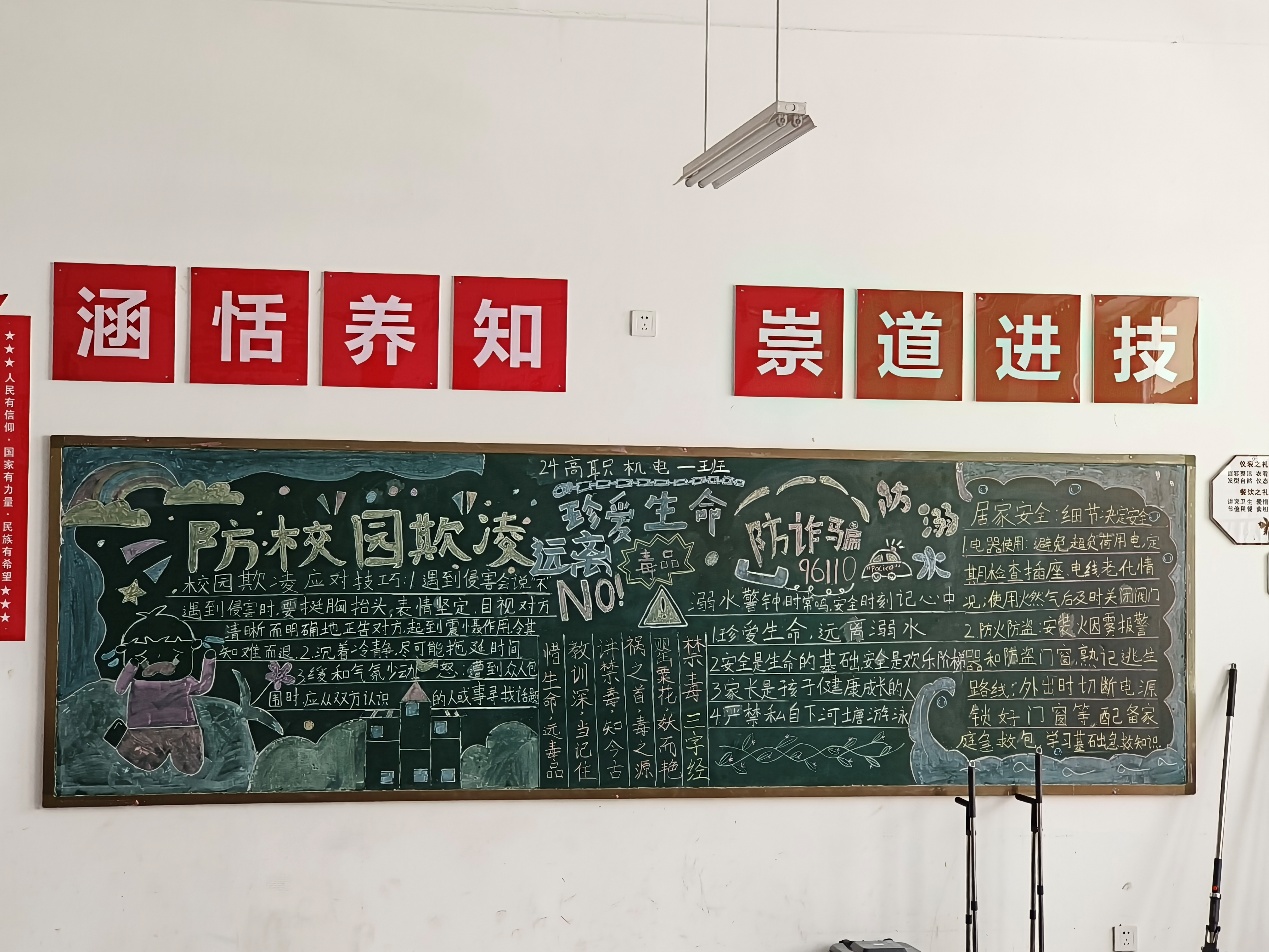 涵恬养知
崇道进技
★★★人民有信仰·国家有力量·民族有希望★★★
24高职机电一班
防校园欺凌
校园欺凌应对技巧:1遇到侵害会说不
遇到侵害时,要挺胸抬头,表情坚定,目视对方
清晰而明确地正告对方,起到震慑作用,令其
知难而退.2.沉着冷静,尽可能拖延时间
3缓和气氛少动 怒.遭到众人包
围时,应从双方认识 的人或事寻找话题
珍爱生命
远离
毒品
NO!
禁毒三字经
罂粟花,妖而艳
祸之首,毒之源
讲禁毒,知今古
教训深,当记住
惜生命,远毒品
防诈骗
96110
Police
防溺水
溺水警钟时常鸣,安全时刻记心中
1珍爱生命,远离溺水
2安全是生命的基础,安全是欢乐阶梯
3家长是孩子健康成长的人
4严禁私自下河塘游泳
居家安全:细节决定安全
1.电器使用:避免超负荷用电,定
期检查插座、电线老化情
况;使用火燃气后及时关闭阀门
2.防火防盗:安装火因雾报警
器和防盗门窗,熟记逃生
路线;外出时切断电源
锁好门窗等,配备家
庭急救包,学习基础急救知识
仪表之礼
餐饮之礼